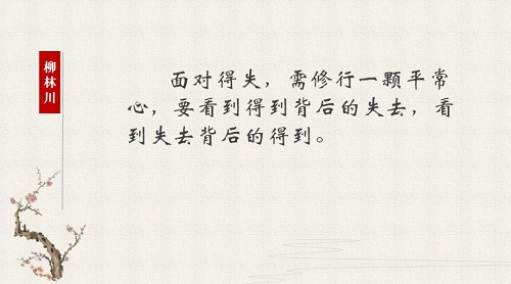 柳林川
面对得失，需修行一颗平常
心，要看到得到背后的失去，看
到失去背后的得到。